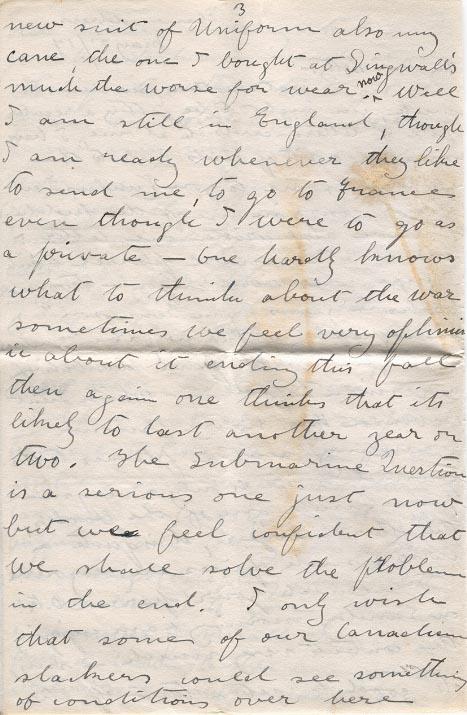 3
new suit of Uniform also my
cane, the one I bought at Dingwall's
much the worse for wear now Well
I am still in England, though
I am ready whenever they like
to send me, to go to France
even though I were to go as
a private — one hardly knows
what to think about the war
sometimes we feel very optimis
ic about it ending this fall
then again one thinks that its
likely to last another year or
two. The Submarine Question
is a serious one just now
but we feel confident that
we shall solve the ploblem
in the end. I only wish
that some of our Canadian
slackers could see something
of conditions over here